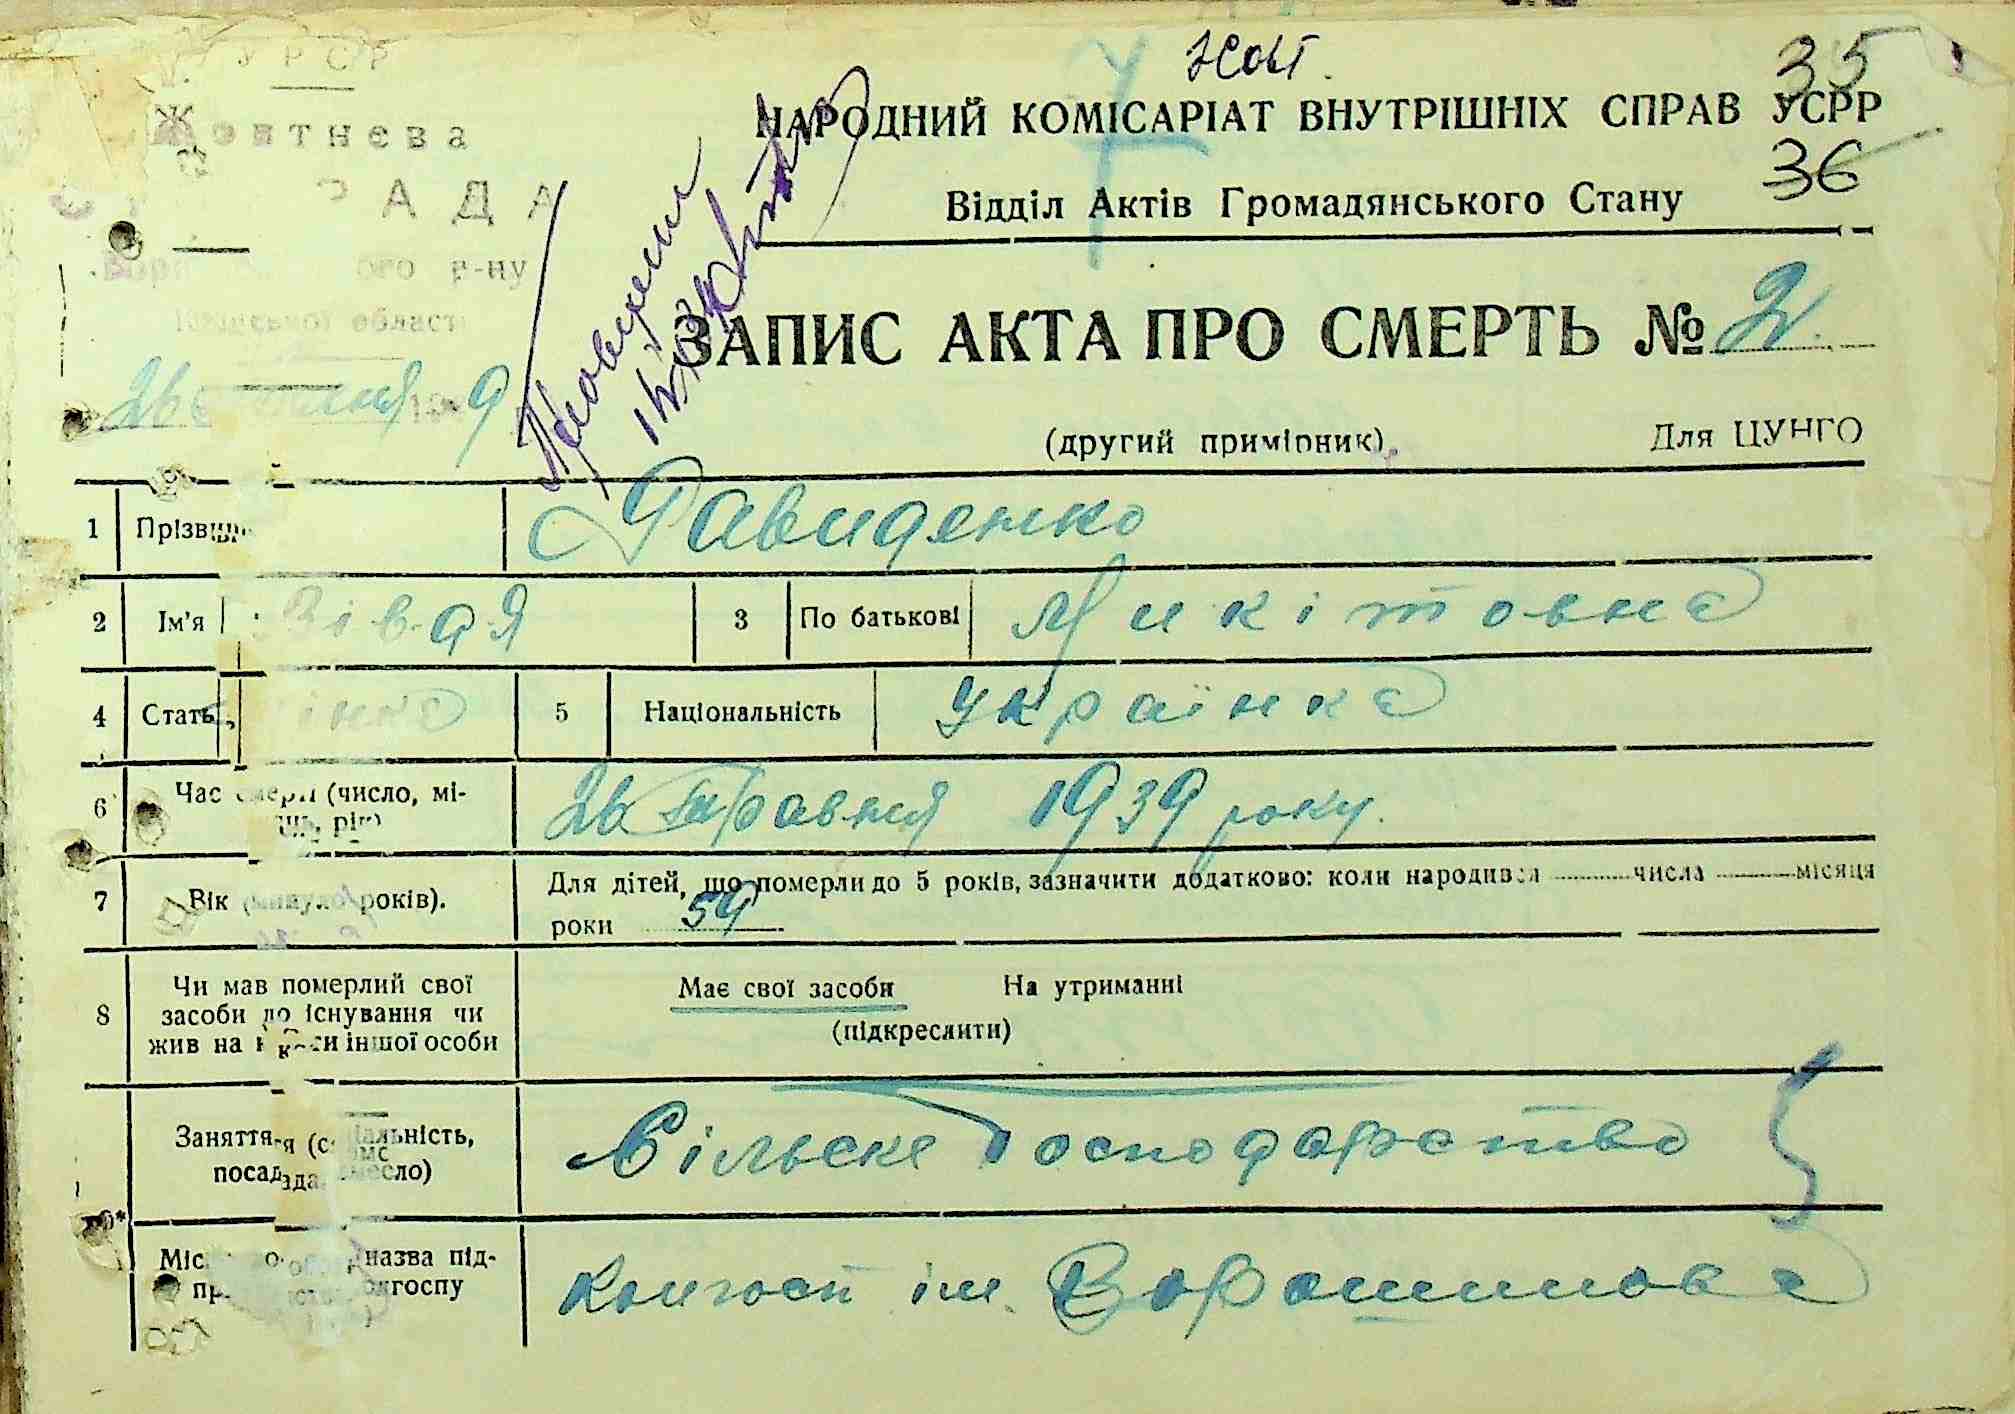 УРСР
Жовтнева
РАДА
ого р-ну
області
Жовт.
35
НАРОДНИЙ КОМІСАРІАТ ВНУТРІШНІХ СПРАВ УСРР
36
Відділ Актів Громадянського Стану
ЗАПИС АКТА ПРО СМЕРТЬ № 2
26 травня 1939
(другий примірник) Для ЦУНГО
1 Прізвище Давиденко
2 Ім'я 3 По батькові Микітовна
4 Стать жінка 5 Національність Українка
6 Час смерти (число, мі-
сяць, рік) 26 травня 1939 року.
7 Вік (минуло років). Для дітей, що померли до 5 років, зазначити додатково: коли народився числа місяця
роки 59
8 Чи мав померлий свої
засоби до існування чи
жив на кошти іншої особи
Має свої засоби На утриманні
(підкреслити)
Заняття (спеціальність,
посада, ремесло)
Сільске господарство
назва під-
Колгосп ім. Ворошилова